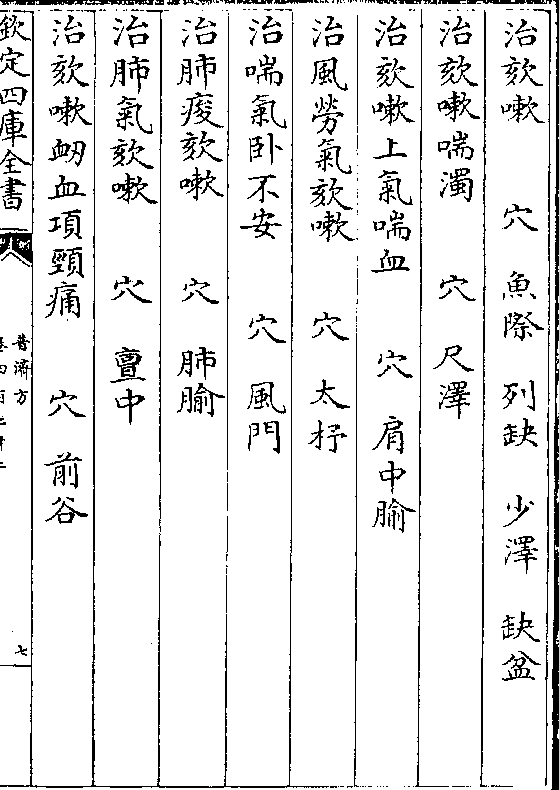 治欬嗽 穴 魚際 列缺 少澤 缺盆
治欬嗽喘濁 穴 尺澤
治欬嗽上氣喘血 穴 肩中腧
治風勞氣欬嗽 穴 太杼
治喘氣卧不安 穴 風門
治肺痿欬嗽 穴 肺腧
治肺氣欬嗽 穴 亶中
治欬嗽衂血項頸痛 穴 前谷
欽定四庫全書
普濟方
七